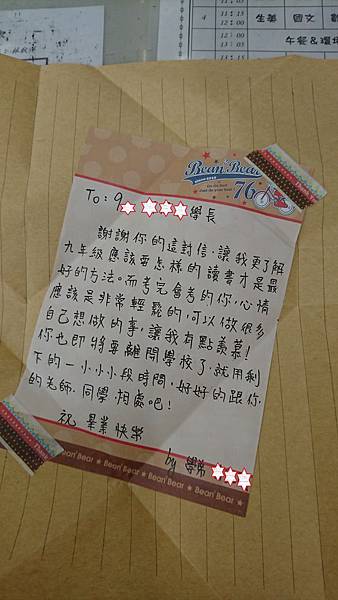 11:15
4
生養
國文
12:00
午餐&環境
Bean Bear
76
To: 9 學長
謝謝你的這封信,讓我更了解
九年級應該要怎樣的讀書才是最
好的方法。而考完會考的你,心情
應該是非常輕鬆的,可以做很多
自己想做的事,讓我有點羨慕!
你也即將要離開學校了,就用剩
下的一小小小段時間,好好的跟你
的老師、同學,相處吧!
祝 畢業快樂
by 學弟
Bean Bear ★ Bean Bear ★ Bean Bear ★ Bean Bear